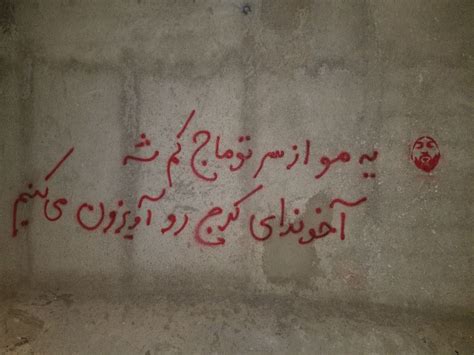 یه مو از سر توماج کم شه
آخوندای کرج رو آویزون می‌کنیم